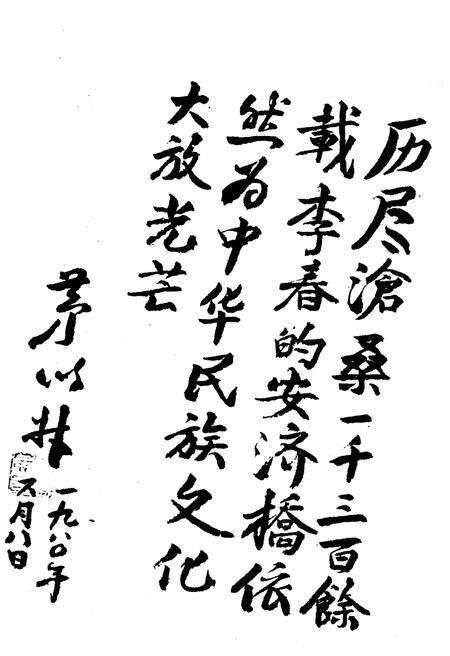 历尽滄桑一千三百餘
載李春的安济橋依
然为中华民族文化
大放光芒
茅以升
一九八〇年
五月八日